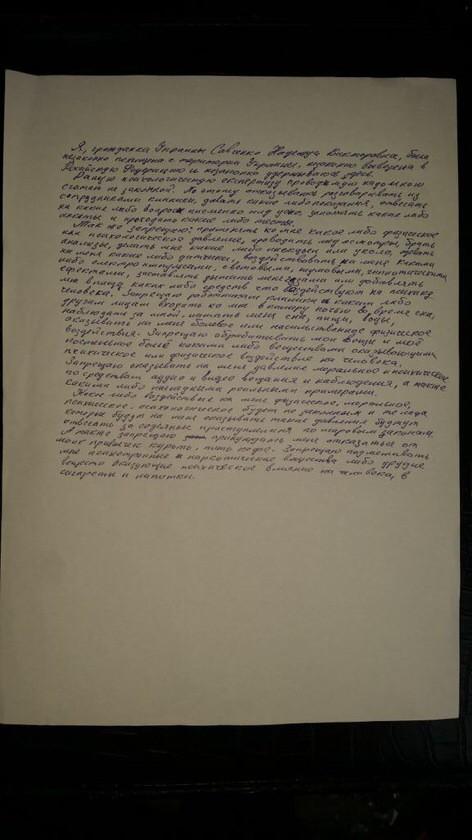 Я, гражданка Украины Савченко Надежда Викторовна, была
незаконно похищена с территории Украины, незаконно вывезена в
Российскую Федерацию и незаконно удерживаюсь здесь.
Данную психологическую экспертизу проводимую надо мною
считаю не законной. По этому отказываюсь разговаривать из
сотрудниками клиники, давать какие либо показания, отвечать
на какие либо вопросы письменно или устно, заполнять какие либо
анкеты и проходить какие либо тесты.
Так же запрещаю: применять ко мне какое либо физическое
или психологическое давление, проводить мед. осмотры, брать
анализы, делать мне какие либо инъекции или уколы, ставить
на меня какие либо датчики, воздействовать на меня какими
либо електроимпульсами, световыми, шумовыми, гипнотическими
ефектами, заставлять дышать меня газами или добавлять
мне в пищу каких либо средств что воздействуют на психику
человека. Запрещаю работникам клиники и каким либо
другим лицам входить ко мне в палату ночью во время сна,
наблюдать за мной, лишать меня сна, пищи, воды,
оказывать на меня болевое или насильственное физическое
воздействия. Запрещаю обрабатывать мои вещи и моё
постельное бельё какими либо веществами оказывающими
психическое или физическое воздействие на человека.
Запрещаю оказывать на меня давление моральное и психическое
по средствам аудио и видео вещания и наблюдения, а также
какими либо наглядными реальными примерами.
Какое либо воздействие на меня физическое, моральное,
психическое, психологическое будет не законным и те лица
которые будут на меня оказывать такие давления будут
отвечать за содеяные преступления по мировым законам.
А также запрещаю принуждать меня отказаться от
моих привычек курить, пить кофе. Запрещаю подмешивать
мне психотропные и наркотические вещества либо другие
вещества оказующие психическое влияние на человека, в
сигареты и напитки.